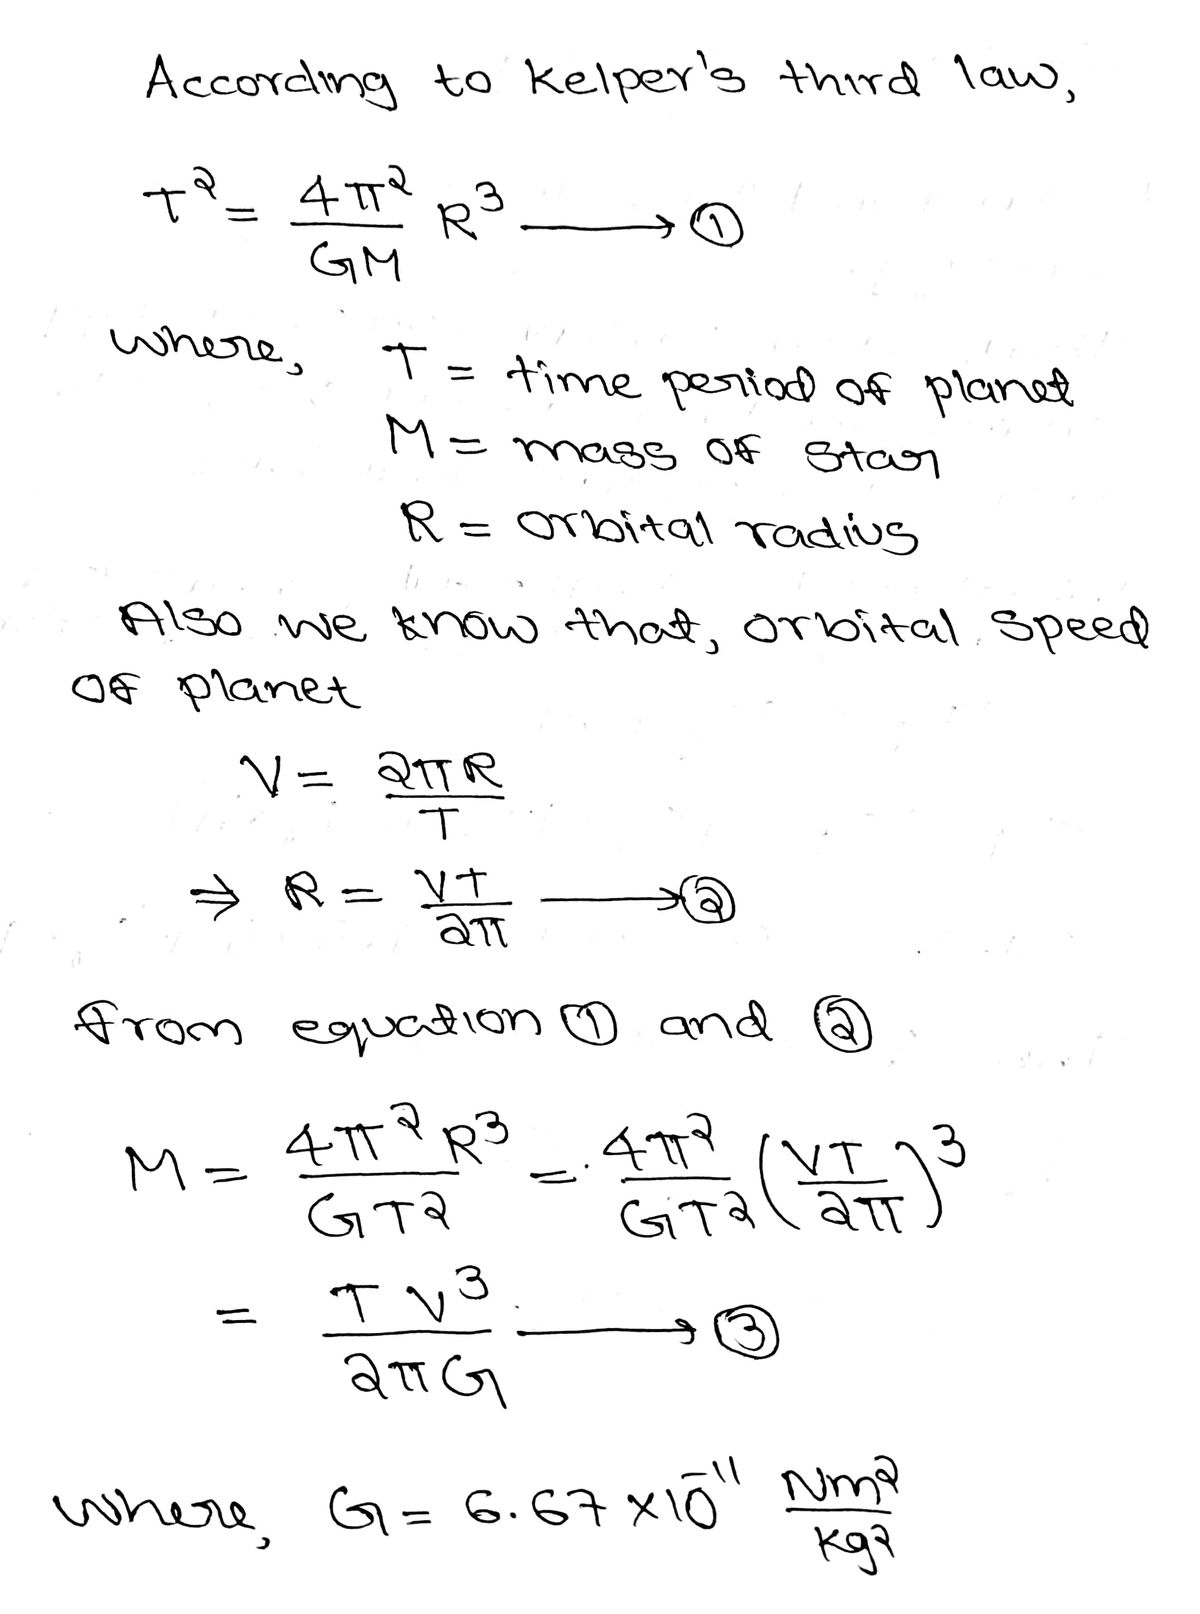 According to Kelper's third law,
T² = 4π²/GM R³ ⟶ ①
where, T = time period of planet
M = mass of star
R = orbital radius
Also we know that, orbital speed
of planet
V = 2πR/T
⇒ R = VT/2π ⟶ ②
from equation ① and ②
M = 4π²R³/GT² = 4π²/GT² (VT/2π)³
= TV³/2πG ⟶ ③
where, G = 6.67 × 10⁻¹¹ Nm²/kg²